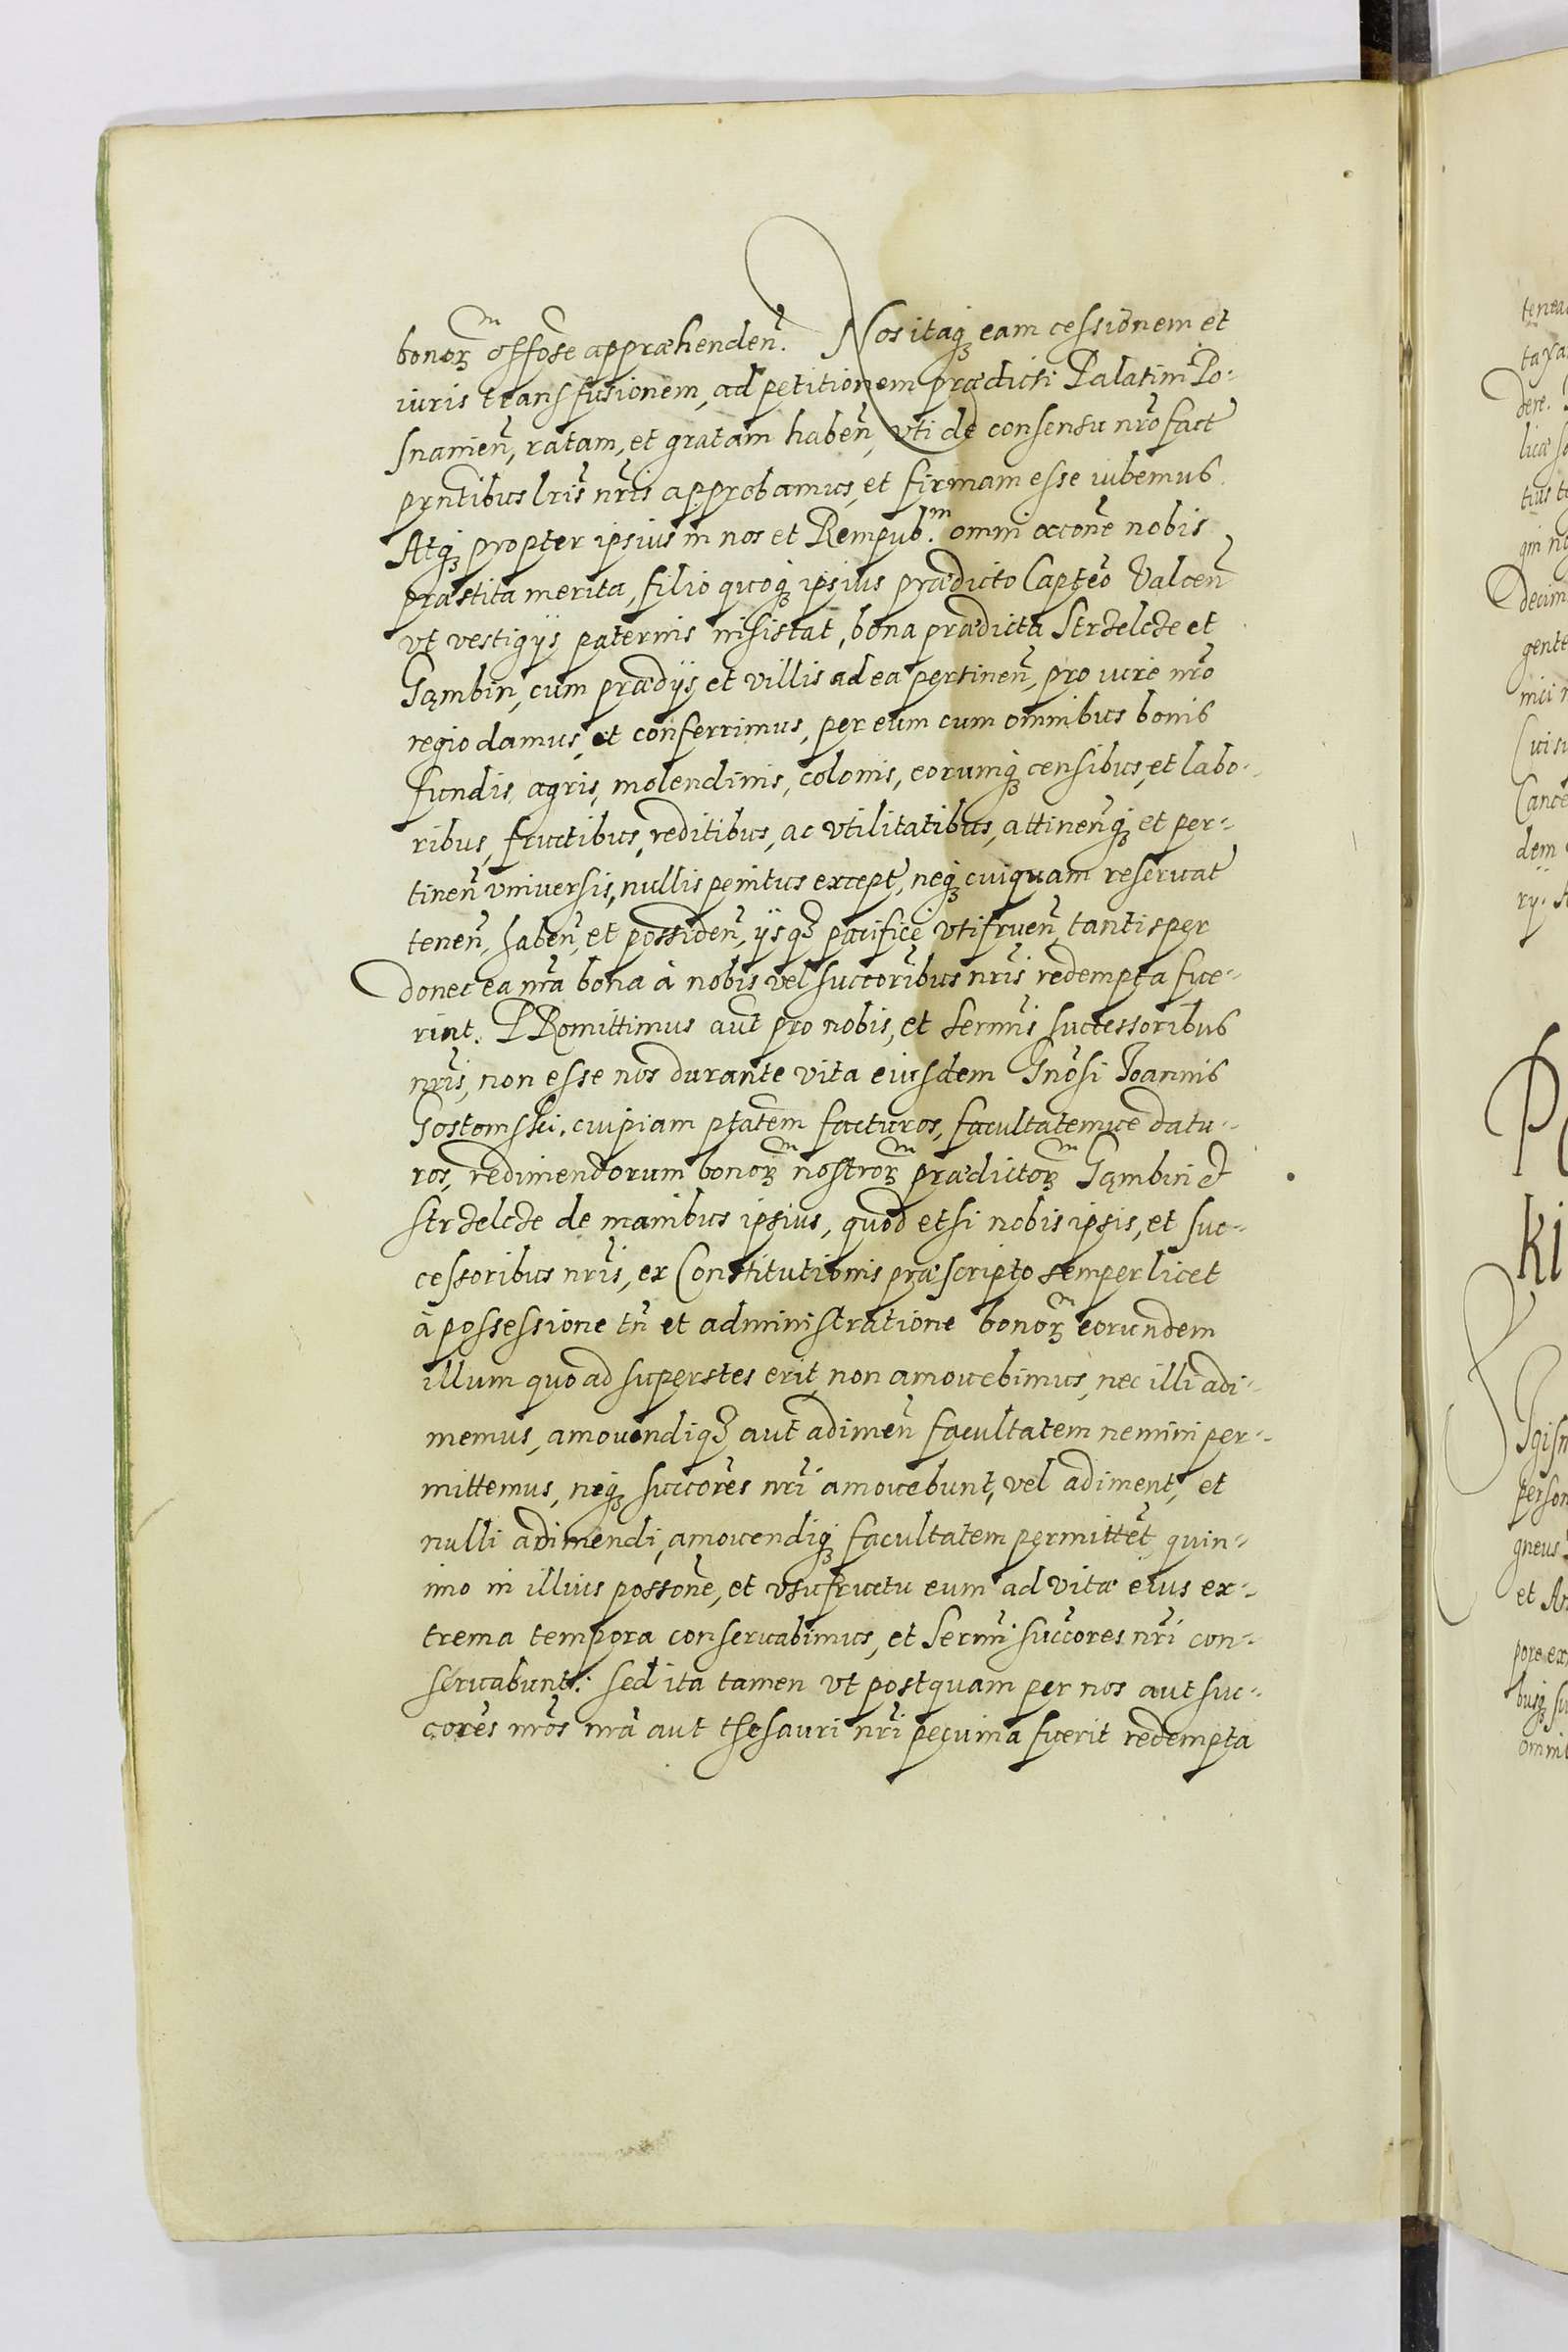 bonorꝫͫ offōse appræhendeñ. Nos itaqꝫ eam cessionem et
iuris transfusionem, ad petitionem prædicti Palatini Po-
snanieñ, ratam, et gratam habeñ, vti de consensu nr̃o fact
pr̃ntibus lr̃is nr̃is approbamus, et firmam esse iubemus.
Atqꝫ propter ipsius in nos et Rempub.ᵐ omni occōne nobis
præstita merita, filio quoqꝫ ipsius prædicto Captēo Valceñ
vt vestigijs paternis insistat, bona prædicta Strzelcze et
Gąmbin, cum prædijs et villis ad ea pertineñ, pro iure nr̃o
regio damus, et conferrimus, per eum cum omnibus bonis
fundis, agris, molendinis, colonis, eorumqꝫ censibus, et labo-
ribus, fructibus, reditibus, ac vtilitatibus, attineñqꝫ et per-
tineñ vniversis, nullis penitus except, neqꝫ cuiquam reservat
teneñ, habeñ, et possideñ, ijsqꝫ pacifice vtifrueñ, tantisper
donec ea nr̃a bona à nobis vel succoribus nr̃is redempta fue-
rint. PRomittimus aut̃ pro nobis, et Serm̃is successoribus
nr̃is, non esse nos durante vita eiusdem Gnōsi Ioannis
Gostomski, cuipiam ptatem facturos, facultatemue datu-
ros, redimendorum bonorꝫͫ nostrorꝫͫ prædictorꝫͫ Gąmbin et
Strzelcze de manibus ipsius, quod etsi nobis ipsis, et suc-
cessoribus nr̃is, ex Constitutionis præscripto semper licet
à possessione tñ et administratione bonorꝫͫ eorundem
illum quoad superstes erit non amouebimus, nec illi adi-
memus, amouendiqꝫ aut adimeñ facultatem nemini per-
mittemus, neqꝫ succores nr̃i amouebunt, vel adiment, et
nulli adimendi, amouendiqꝫ facultatem permittet̃, quin-
imo in illius possōne, et vsufructu eum ad vitæ eius ex-
trema tempora conseruabimus, et Serm̃i succores nr̃i con-
seruabunt: sed ita tamen vt postquam per nos aut suc-
cores nr̃os nr̃a aut thesauri nr̃i pecunia fuerit redempta